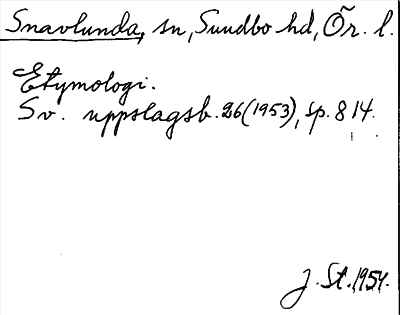 Snavlunda, sn, Sundbo hd, Ör. l.
Etymologi.
Sv. uppslagsb. 26(1953), sp. 814.
J. St. 1954.